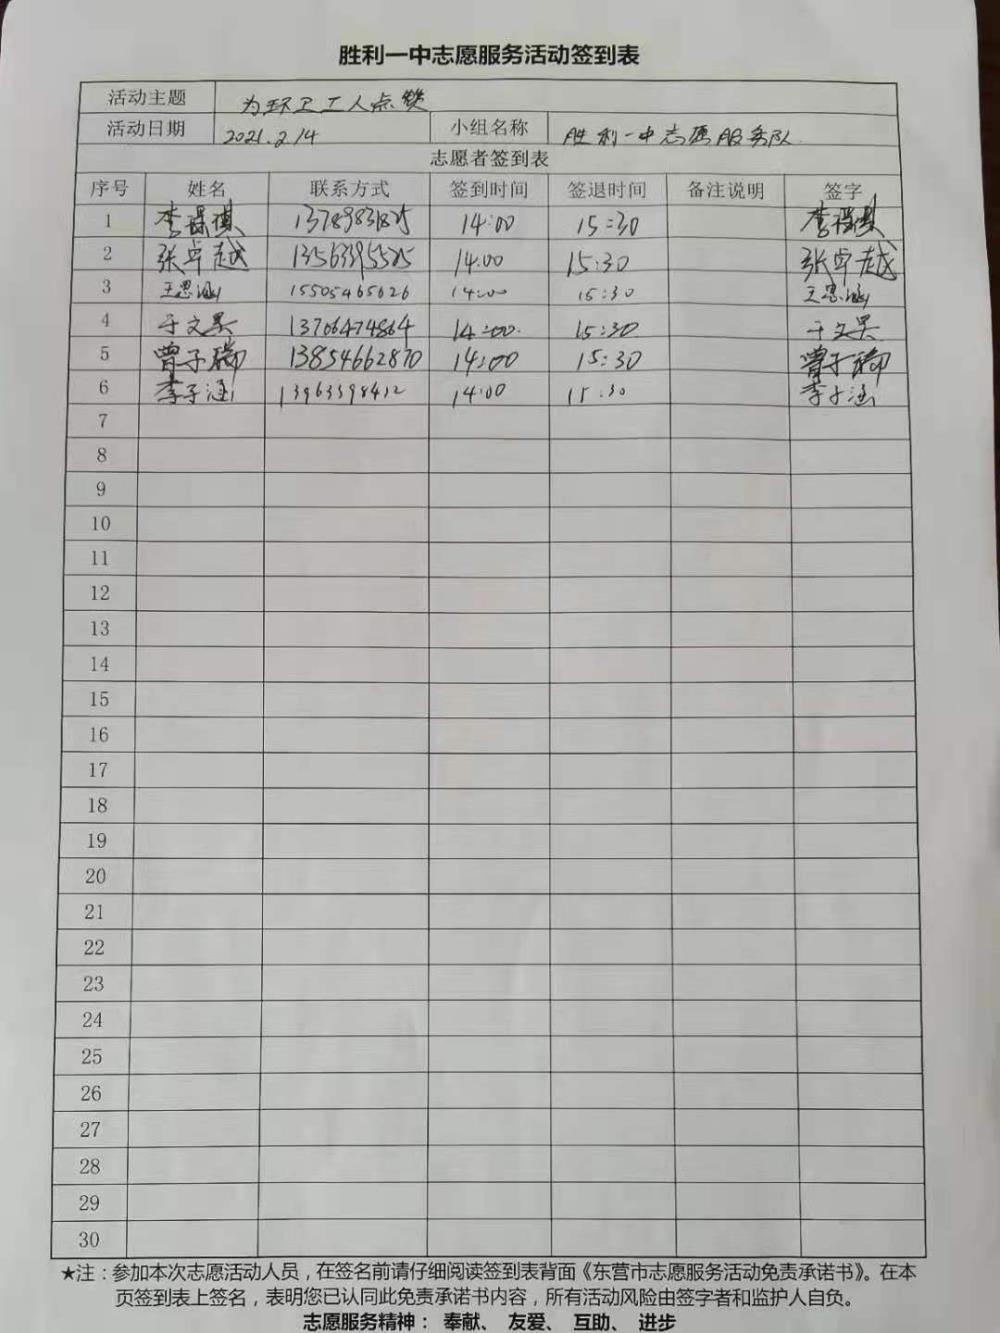 胜利一中志愿服务活动签到表
活动主题 为环卫工人点赞
活动日期 2021.2.14 小组名称 胜利一中志愿服务队
志愿者签到表
序号 姓名 联系方式 签到时间 签退时间 备注说明 签字
1 李 14:00 15:30 李
2 张卓越 14:00 15:30 张卓越
3 王思涵 15505465626 14:00 15:30 王思涵
4 于文昊 13706474864 14:00 15:30 于文昊
5 曾子瑞 13854662870 14:00 15:30 曾子瑞
6 李子涵 13963398412 14:00 15:30 李子涵
7
8
9
10
11
12
13
14
15
16
17
18
19
20
21
22
23
24
25
26
27
28
29
30
★注：参加本次志愿活动人员，在签名前请仔细阅读签到表背面《东营市志愿服务活动免责承诺书》。在本
页签到表上签名，表明您已认同此免责承诺书内容，所有活动风险由签字者和监护人自负。
志愿服务精神： 奉献、 友爱、 互助、 进步